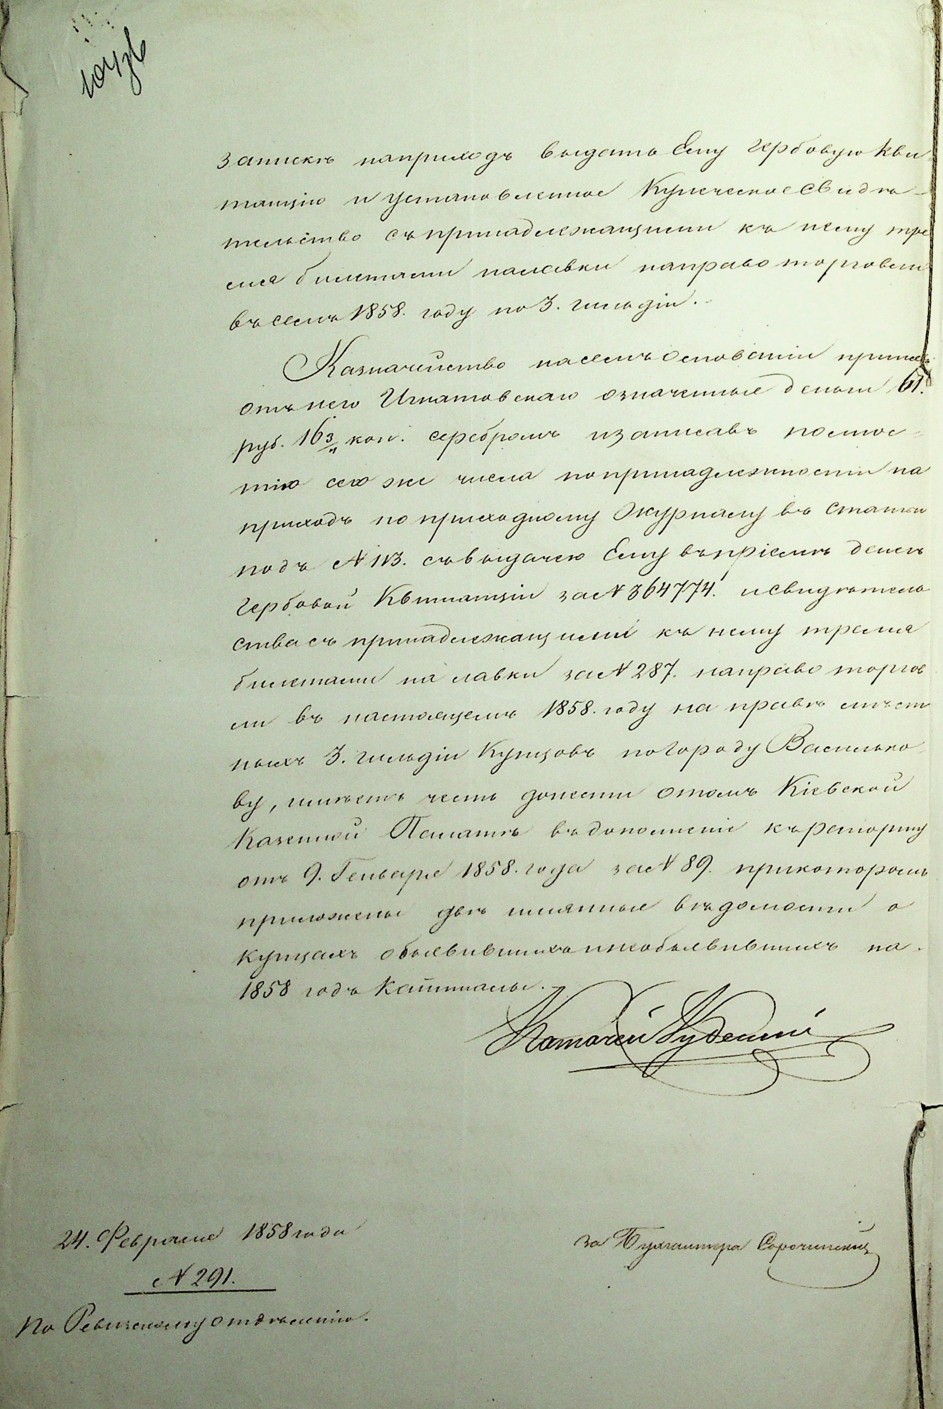 запискѣ наприходъ выдать Ему гербовую Кви
танцію и установленное Купеческое свидѣ-
тельство съпринадлежащими къ нему тре
мя билетами налавки направо торговли
въ семъ 1858. году по 3. гильдіи.
Казначейство насемъ основаніи принявъ
отъ него Игнатовскаго означенные деньги 61.
руб. 16 3/4 коп. серебромъ изаписавъ полнос-
тію сего же числа попринадлежности на
приходъ по приходному Журналу въ статьи
подъ № 113. свыдачею Ему въпріемѣ денегъ
гербовой Квитанціи за № 364774. исвидѣтель
ства съ принадлежащими къ нему тремя
билетами на лавки за № 287. направо торгов
ли въ настоящемъ 1858. году на правѣ мѣст
ныхъ 3. гильдіи Купцовъ погороду Василько
ву, имѣетъ честь донести отомъ Кіевской
Казенной Палатѣ вдополненіе къ рапорту
отъ 9. Генваря 1858. года за № 89. прикоторомъ
приложены двѣ имянные вѣдомости о
купцахъ объявившихъ инеобъявившихъ на
1858 годъ Капиталы.
24. Февраля 1858 года
№ 291.
за Бухгалтера Сорочинскій
По Ревизскому отдѣленію.